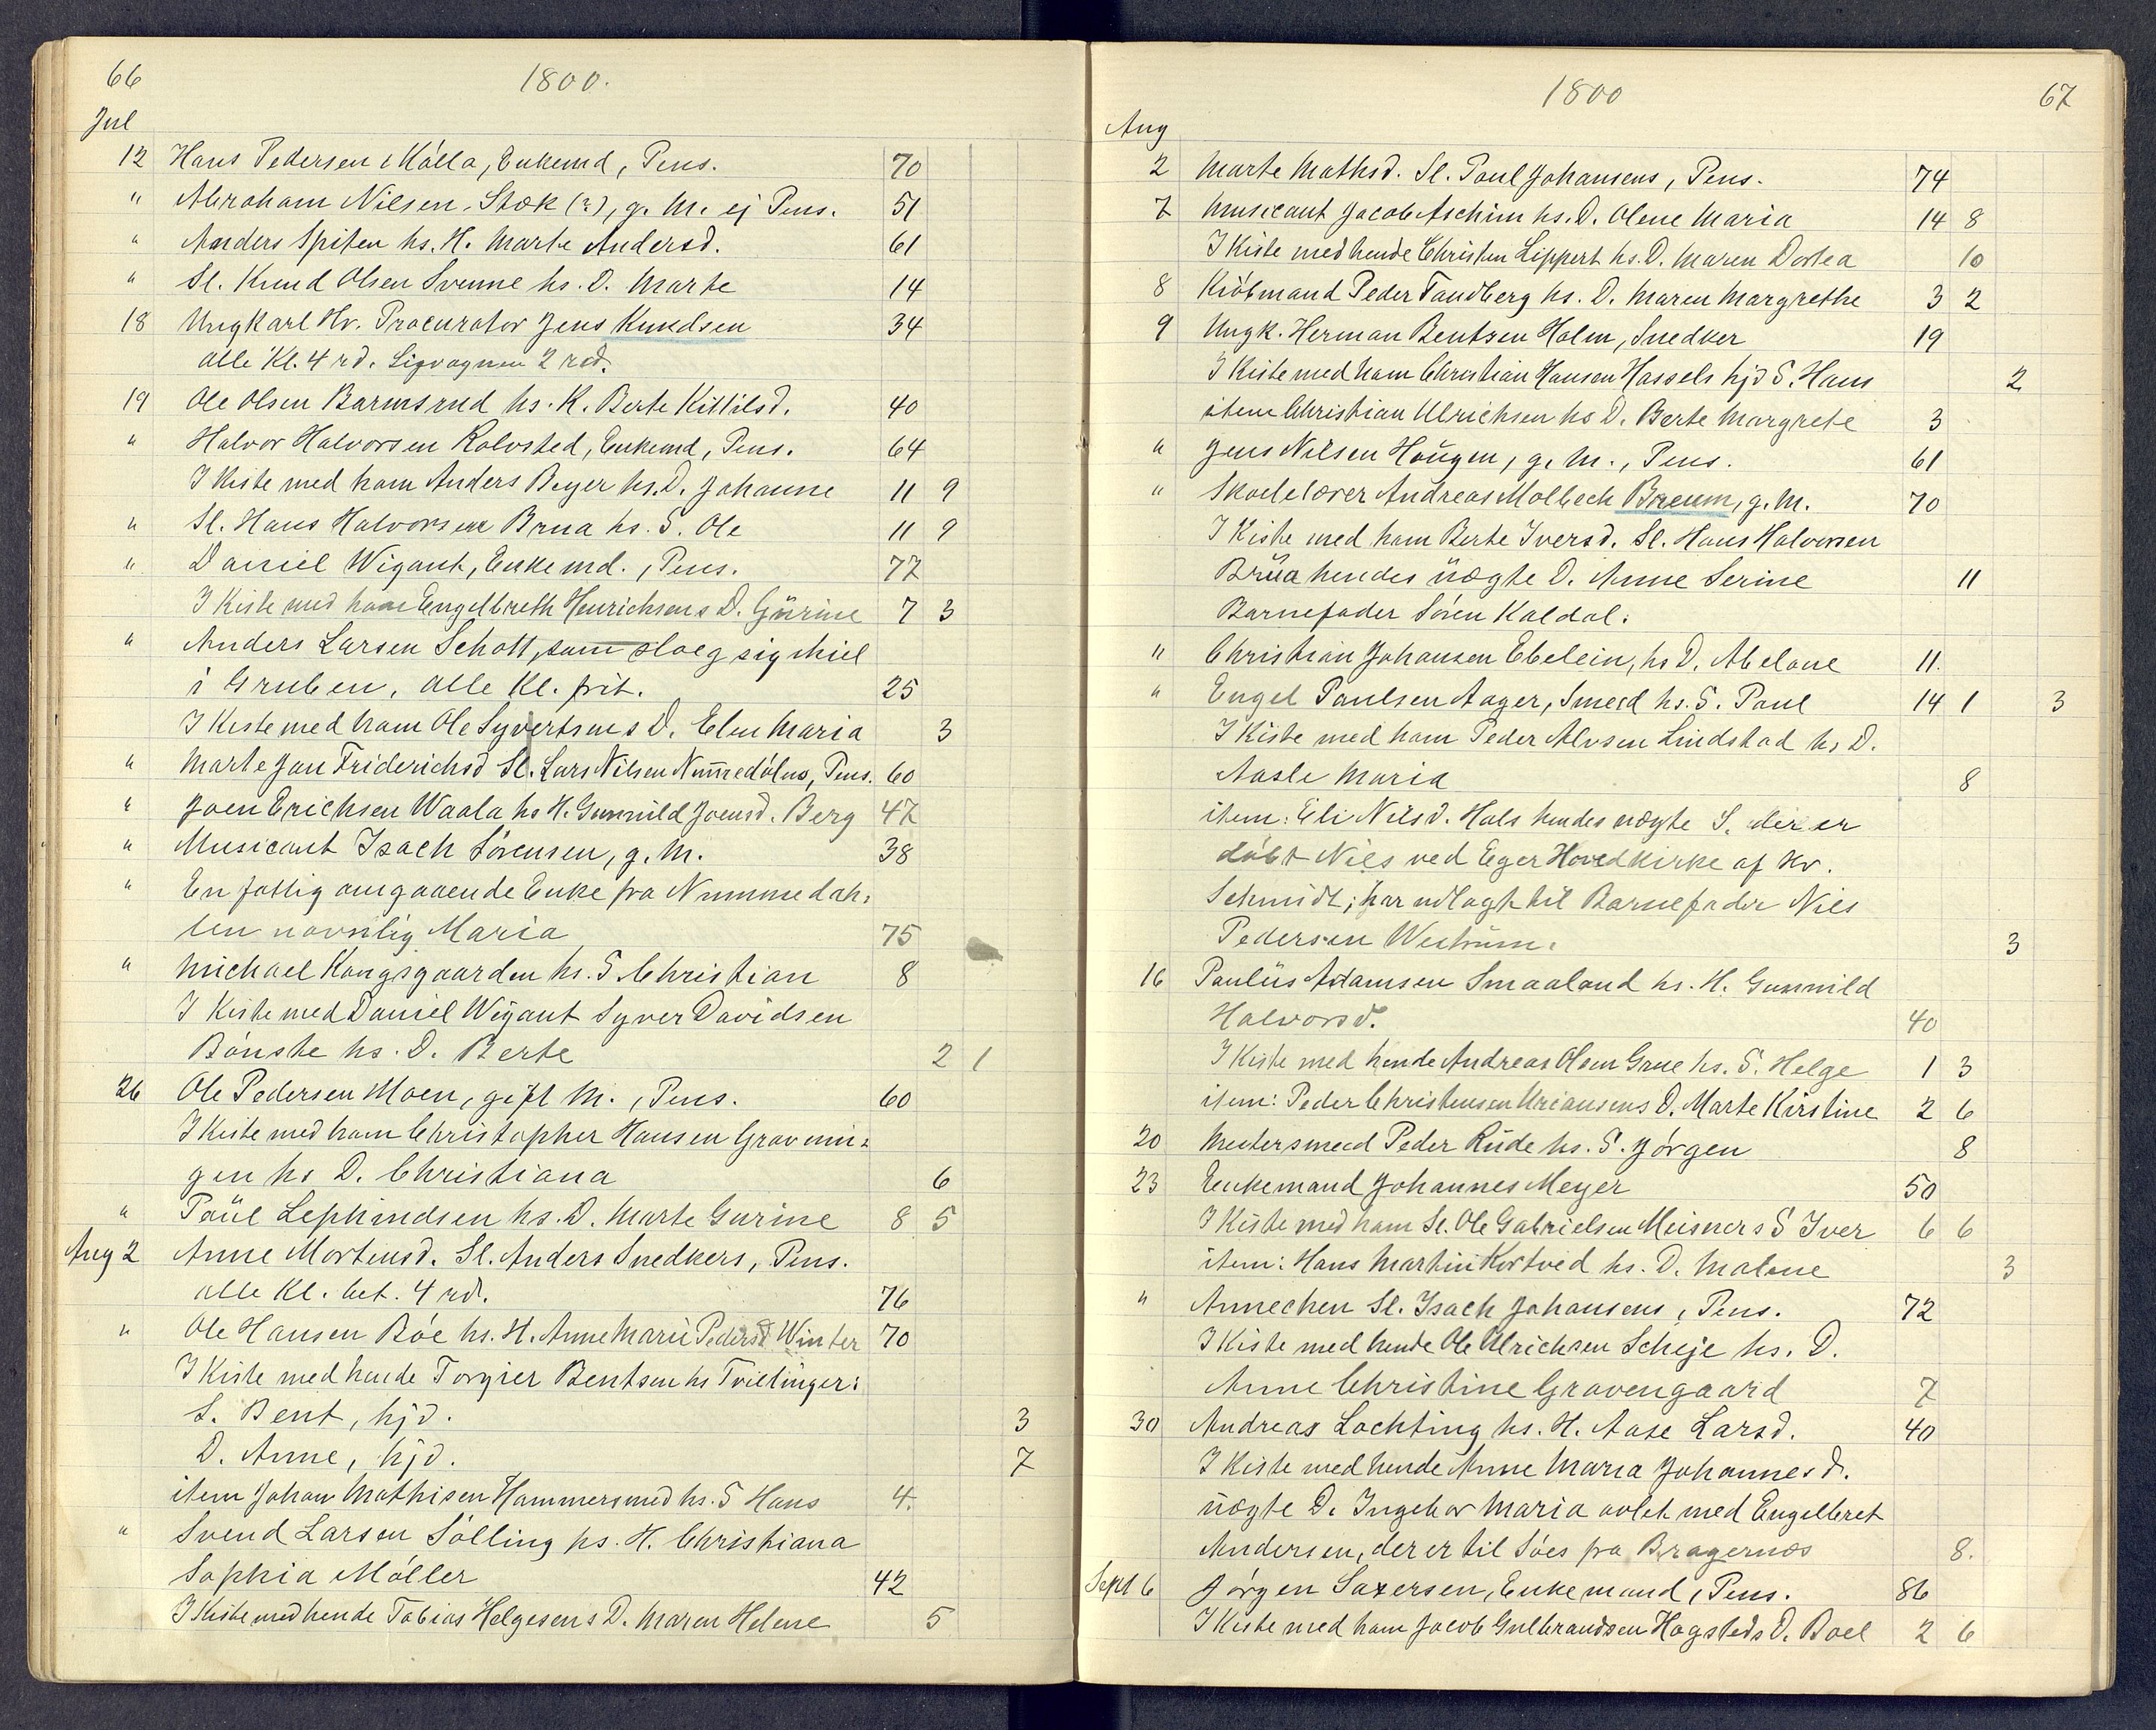 66
1800.
Jul
12 Hans Pedersen i Kólla, Enkemd, Pens. 70
" Abraham Nilsen Stok (?), g. M. ej Pens. 51
" Anders Spiten hs. H. Marte Andersd. 61
" Sl. Knud Olsen Svenne hs. D. Marte 14
18 Ungkarl Hr. Procurator Jens Knudsen 34
alle Kl. 4 rd. Ligvognen 2 rd.
19 Ole Olsen Barmsrud hs. K. Berte Kittilsd. 40
" Halvor Halvorsen Rolvsted, Enkemd, Pens. 64
I Kiste med ham Anders Beyer hs. D. Johanne 11 9
" Sl. Hans Halvorsen Brua hs. S. Ole 11 9
" Daniel Wigant, Enkemd., Pens. 77
I Kiste med ham Engelbreth Henrichsens D. Gürine 7 3
" Anders Larsen Schott, som sloeg sig ihiel
i Gruben, alle Kl. frit. 25
I Kiste med ham Ole Syvertsens D. Elen Maria 3
" Marte Jan Friderichsd Sl. Lars Nilsen Nummedóls, Pens. 60
" Joen Erichsen Waala hs H. Gunnild Joensd. Berg 47
" Musicant Isach Sörensen, g. M. 38
" En fattig omgaaende Enke fra Nummedah-
len navnlig Maria 75
" Michael Kongsgaarden hs. S. Christian 8
I Kiste med Daniel Wigant Syver Davidsen
Bónste hs. D. Berte 2 1
26 Ole Pedersen Moen, gift M., Pens. 60
I Kiste med ham Christopher Hansen Gravenin-
gen hs D. Christiana 6
" Paül Lephindsen hs. D. Marte Gurine 8 5
Aug 2 Anne Mortensd. Sl. Anders Snedkers, Pens.
alle Kl. bet. 4 rd. 76
" Ole Hansen Bóe hs. H. Anne Marie Pedersd Winter 70
I Kiste med hende Torgier Bentsen hs Tvillinger:
S. Bent, hjd. 3
D. Anne, hjd. 7
item Johan Mathisen Hammersmed hs. S Hans 4.
" Svend Larsen Sólling hs. H. Christiana
Sophia Móller 42
I Kiste med hende Tobias Helgesens D. Maren Helene 5
1800
67
Aug
2 Marte Mathsd. Sl. Poul Johansens, Pens. 74
7 Musicant Jacob Aschim hs. D. Olene Maria 14 8
I Kiste med hende Christen Lippert hs. D. Maren Dortea 10
8 Kióbmand Peder Tandberg hs. D. Maren Margrethe 3 2
9 Ungk. Herman Bentsen Holm, Snedker 19
I Kiste med ham Christian Hansen Hassels hjd S. Hans 2
item Christian Ulrichsen hs D. Berte Margrete 3
" Jens Nilsen Haügen, g. M., Pens. 61
" Skoelelærer Andreas Molbech Breum, g. M. 70
I Kiste med ham Berte Iversd. Sl. Hans Halvorsen
Brüa hendes üægte D. Anne Serine 11
Barnefader Sóren Kaldal.
" Christian Johansen Ebelein, hs D. Abelone 11.
" Engel Paulsen Aager, Smed hs. S. Poul 14 1 3
I Kiste med ham Peder Alvsen Lindstad hs D.
Aasle Maria 8
item: Eli Nilsd. Hals hendes uægte S. der er
dóbt Niels ved Eger Hovedkirke af Hr.
Schmidt; har udlagt til Barnefader Niels
Pedersen Westrüm. 3
16 Paulüs Adamsen Smaaland hs. H. Gunnild
Halvorsd. 40
I Kiste med hende Andreas Olsen Grue hs. S. Helge 1 3
item: Peder Christensen Uriansens D. Marte Kirstine 2 6
20 Mestersmed Peder Rüde hs. S. Jórgen 8
23 Enkemand Johannes Meyer 50
I Kiste med ham Sl. Ole Gabrielsen Meisners S Iver 6 6
item: Hans Martin Kortved hs. D. Malene 3
" Annechen Sl. Isach Johansens, Pens. 72
I Kiste med hende Ole Ulrichsen Scheje hs. D.
Anne Christine Gravengaard 7
30 Andreas Lochting hs. H. Aase Larsd. 40
I Kiste med hende Anne Maria Johannesd.
üægte D. Ingebor Maria avlet med Engelbret
Andersen, der er til Sóes fra Bragernæs 8.
Sept 6 Jórgen Saxersen, Enkemand, Pens. 86
I Kiste med ham Jacob Gulbrandsen Hagsteds D. Boel 2 6